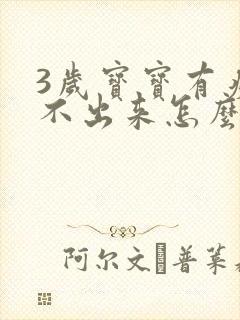 3歲寶寶有
不出来怎麼
阿尔文·普萊